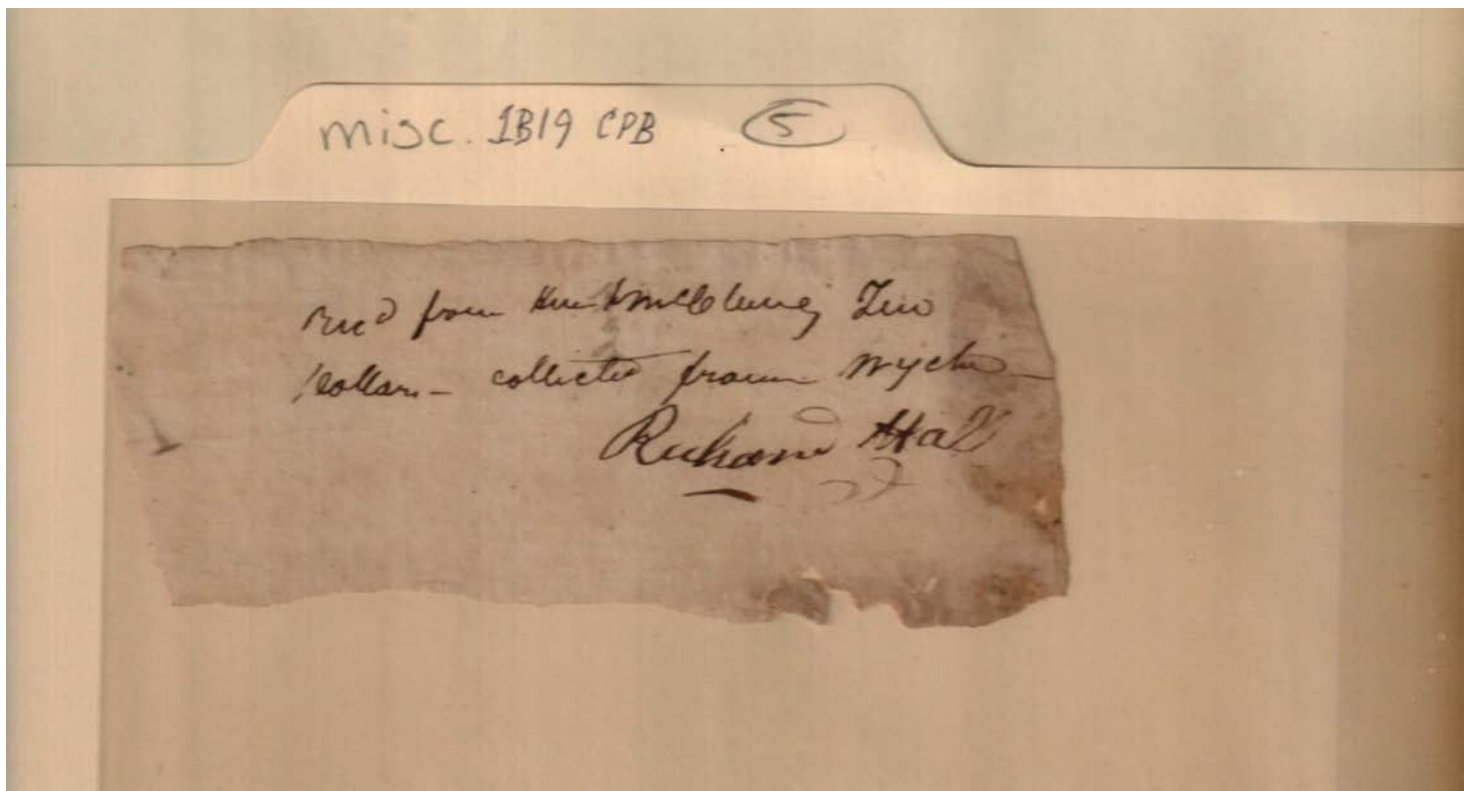 misc. 1B19 CPB 5
Rec'd from McClung Two
Dollars - collected from Wyche
Richard Hall